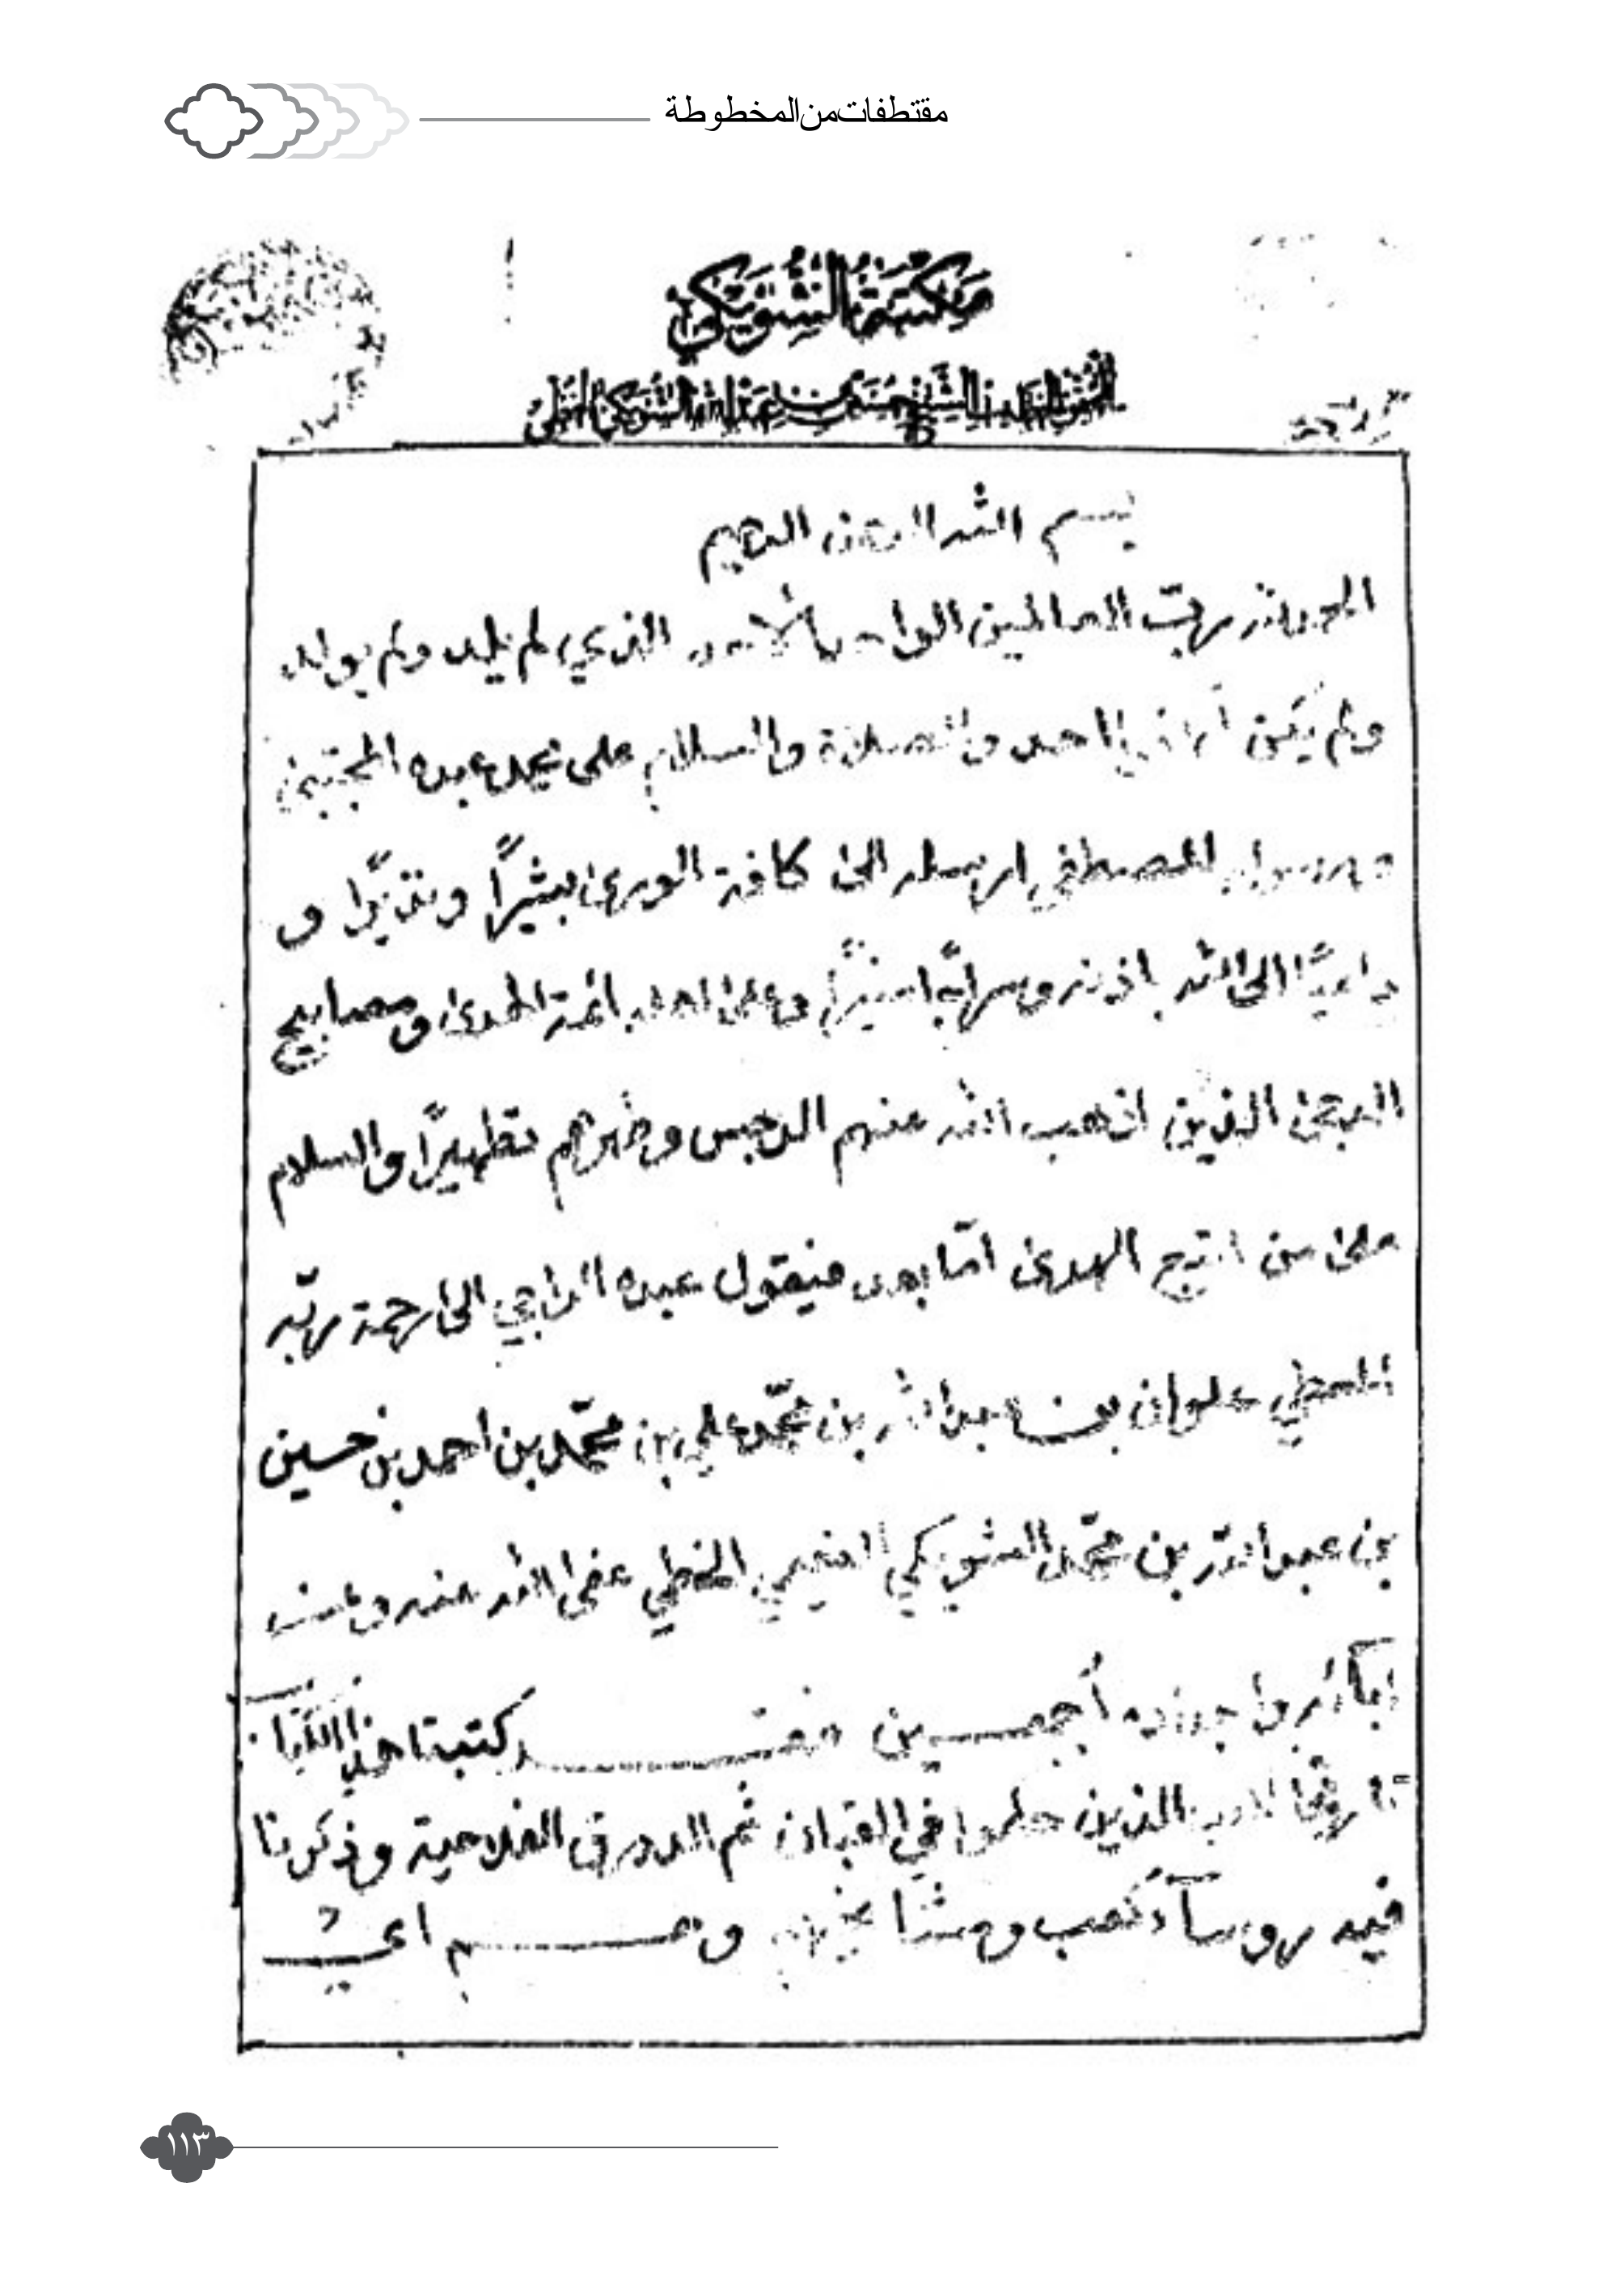 مقتطفات من المخطوطة
مكتبة الشويكي
الشيخ حسن بن عبد الله الشويكي الخطي
بسم الله الرحمن الرحيم
الحمد لله رب العالمين الواحد الأحد الذي لم يلد ولم يولد
ولم يكن له احد والصلاة والسلام على محمد عبده المجتبى
ورسوله المصطفى ارسله الى كافة الورى بشيراً ونذيراً و
داعياً الى الله باذنه وسراجاً منيراً وعلى اله ائمة الهدى ومصابيح
الدجى الذين اذهب الله عنهم الرجس وطهرهم تطهيراً والسلام
على من اتبع الهدى امّا بعد فيقول عبده الراجي الى رحمة ربّه
المعطي علوان بن عبد الله بن محمّد علي بن محمّد بن احمد بن حسين
بن عبد الله بن محمّد الشويكي النعيمي الخطي عفى الله عنه وعن
ابآئه واجداده أجمعين فقد كتبنا هذا الكتاب
الذين حلموا في القبان ثم الدورق الفلاحية وذكرنا
فيه روسآء كعب ومشائخهم وهم اعني
١١٣